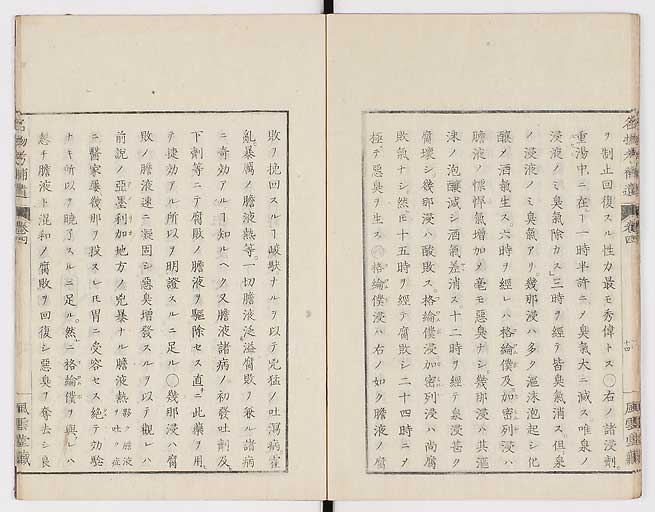 ヲ制止回復スル性カ最モ秀偉トス〇右ノ諸浸劑
重湯中ニ在ー一時半許ニメ臭氣大ニ減ス唯泉ノ
浸液ノミ臭氣除カス三時ヲ經テ皆臭氣消ス但泉
ノ浸液ノミ臭氣アリ幾那浸ハ多ク漚沫泡起シ化
釀ノ酒氣生ス六時ヲ經レハ格綸僕及加密列浸ハ
膽液ノ慓悍氣増加メ毫モ惡臭ナシ幾那浸ハ其漚
沫ノ泡釀減シ酒氣差消ス十二時ヲ經テ泉浸甚ク
腐壞シ幾那浸ハ酸敗ス格綸僕浸加密列浸ハ尚腐
敗氣ナシ然𪜈十五時ヲ經テ腐敗シ二十四時ニメ
極テ惡臭ヲ生ス〇格綸僕浸ハ右ノ如ク膽液ノ腐
名物考補遺 卷四 十四 風雲堂藏
敗ヲ挽回スルー峻駃ナルヲ以テ兇猛ノ吐瀉病霍
亂暴厲ノ膽液熱等一切膽液泛溢腐敗ヲ兼ル諸病
ニ奇効アルー知ルヘク又膽液諸病ノ初發吐劑及
下劑等ニテ腐敗ノ膽液ヲ驅除セス直ニ此藥ヲ用
テ捷効アル所以ヲ明證スルニ足ル〇幾那浸ハ腐
敗ノ膽液速ニ凝固シ惡臭増發スルヲ以テ觀レハ
前説ノ亞墨利加地方ノ兇暴ナル膽液熱夥ク膽液ヲ吐ク症
ニ醫家屢幾那ヲ投スレ𪜈胃ニ受容セス絶テ効驗
ナキ所以ヲ曉了スルニ足ル然ニ格綸僕ヲ與レハ
忽チ膽液ト混和メ腐敗ヲ回復シ惡臭ヲ奪去シ良
名物考補遺 卷四 風雲堂藏